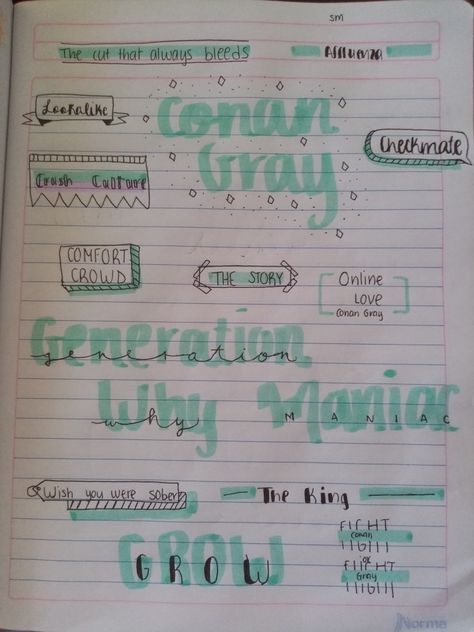 sm
The cut that always bleeds
Affluenza
Lookalike
Conan
Gray
Checkmate
Crush Culture
COMFORT
CROWD
THE STORY
Online
Love
Conan Gray
Generation
generation
Why
why
Maniac
MANIAC
Wish you were sober
The King
GROW
GROW
FIGHT
Conan
or
Gray
FLIGHT
Norma